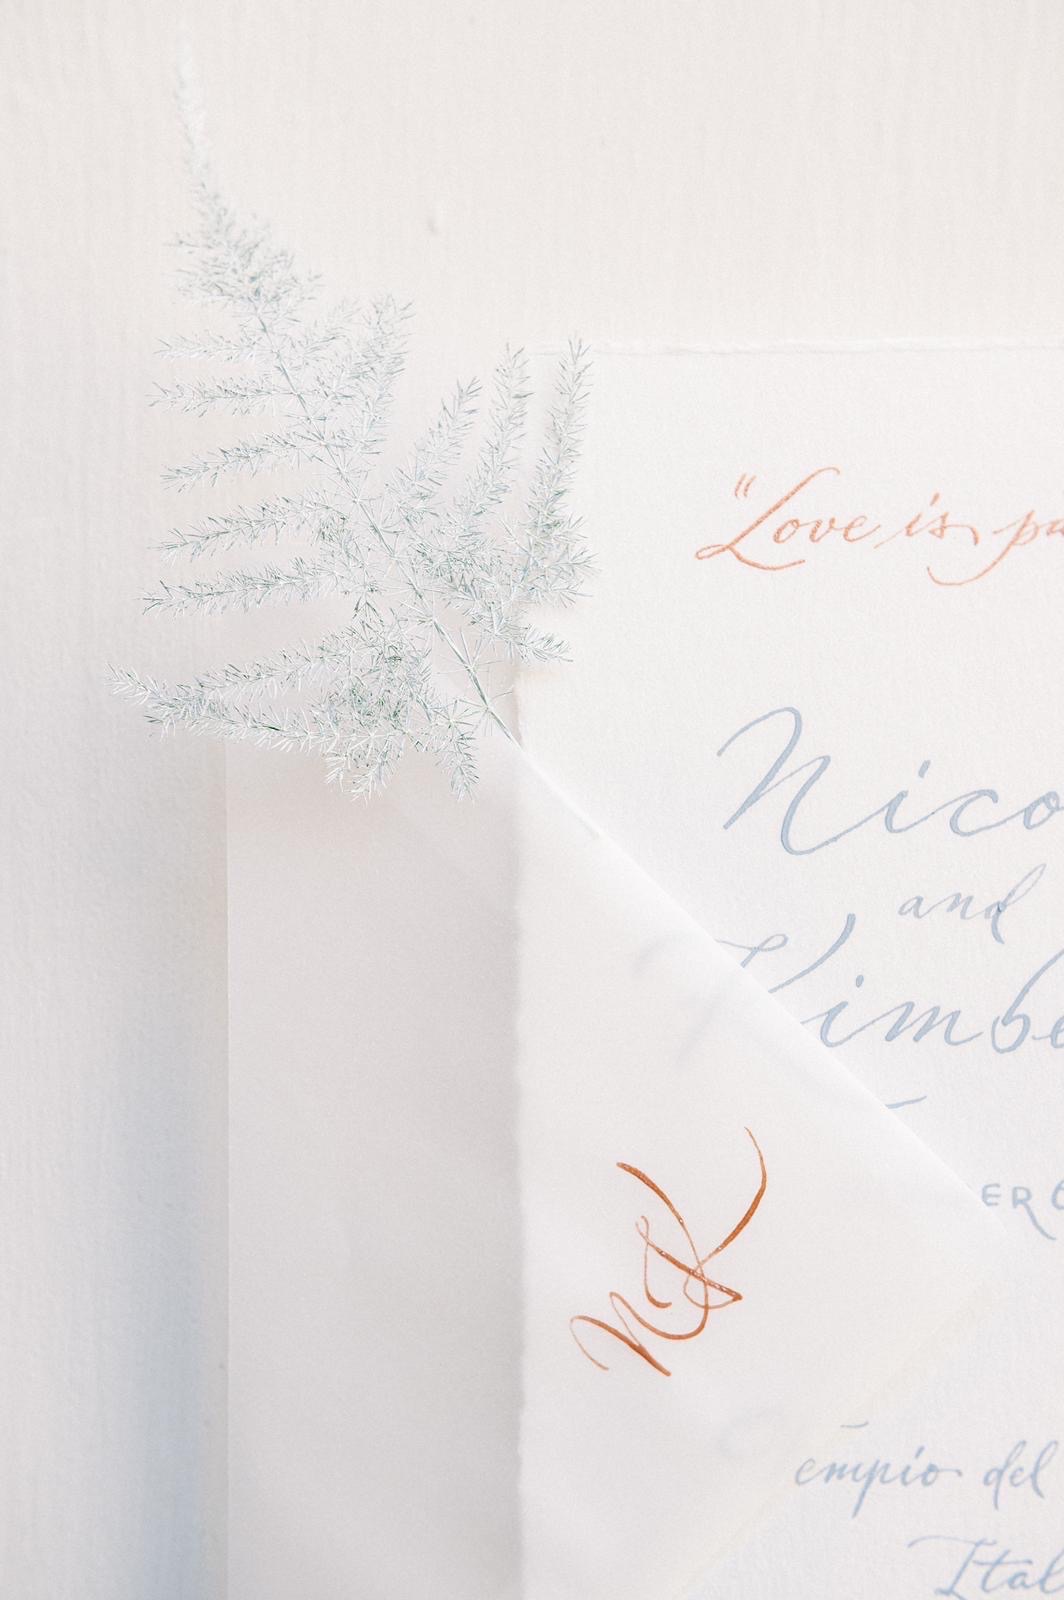 "Love is pu
Nico
and
Kimbe
ER
N&K
empio del
Ital